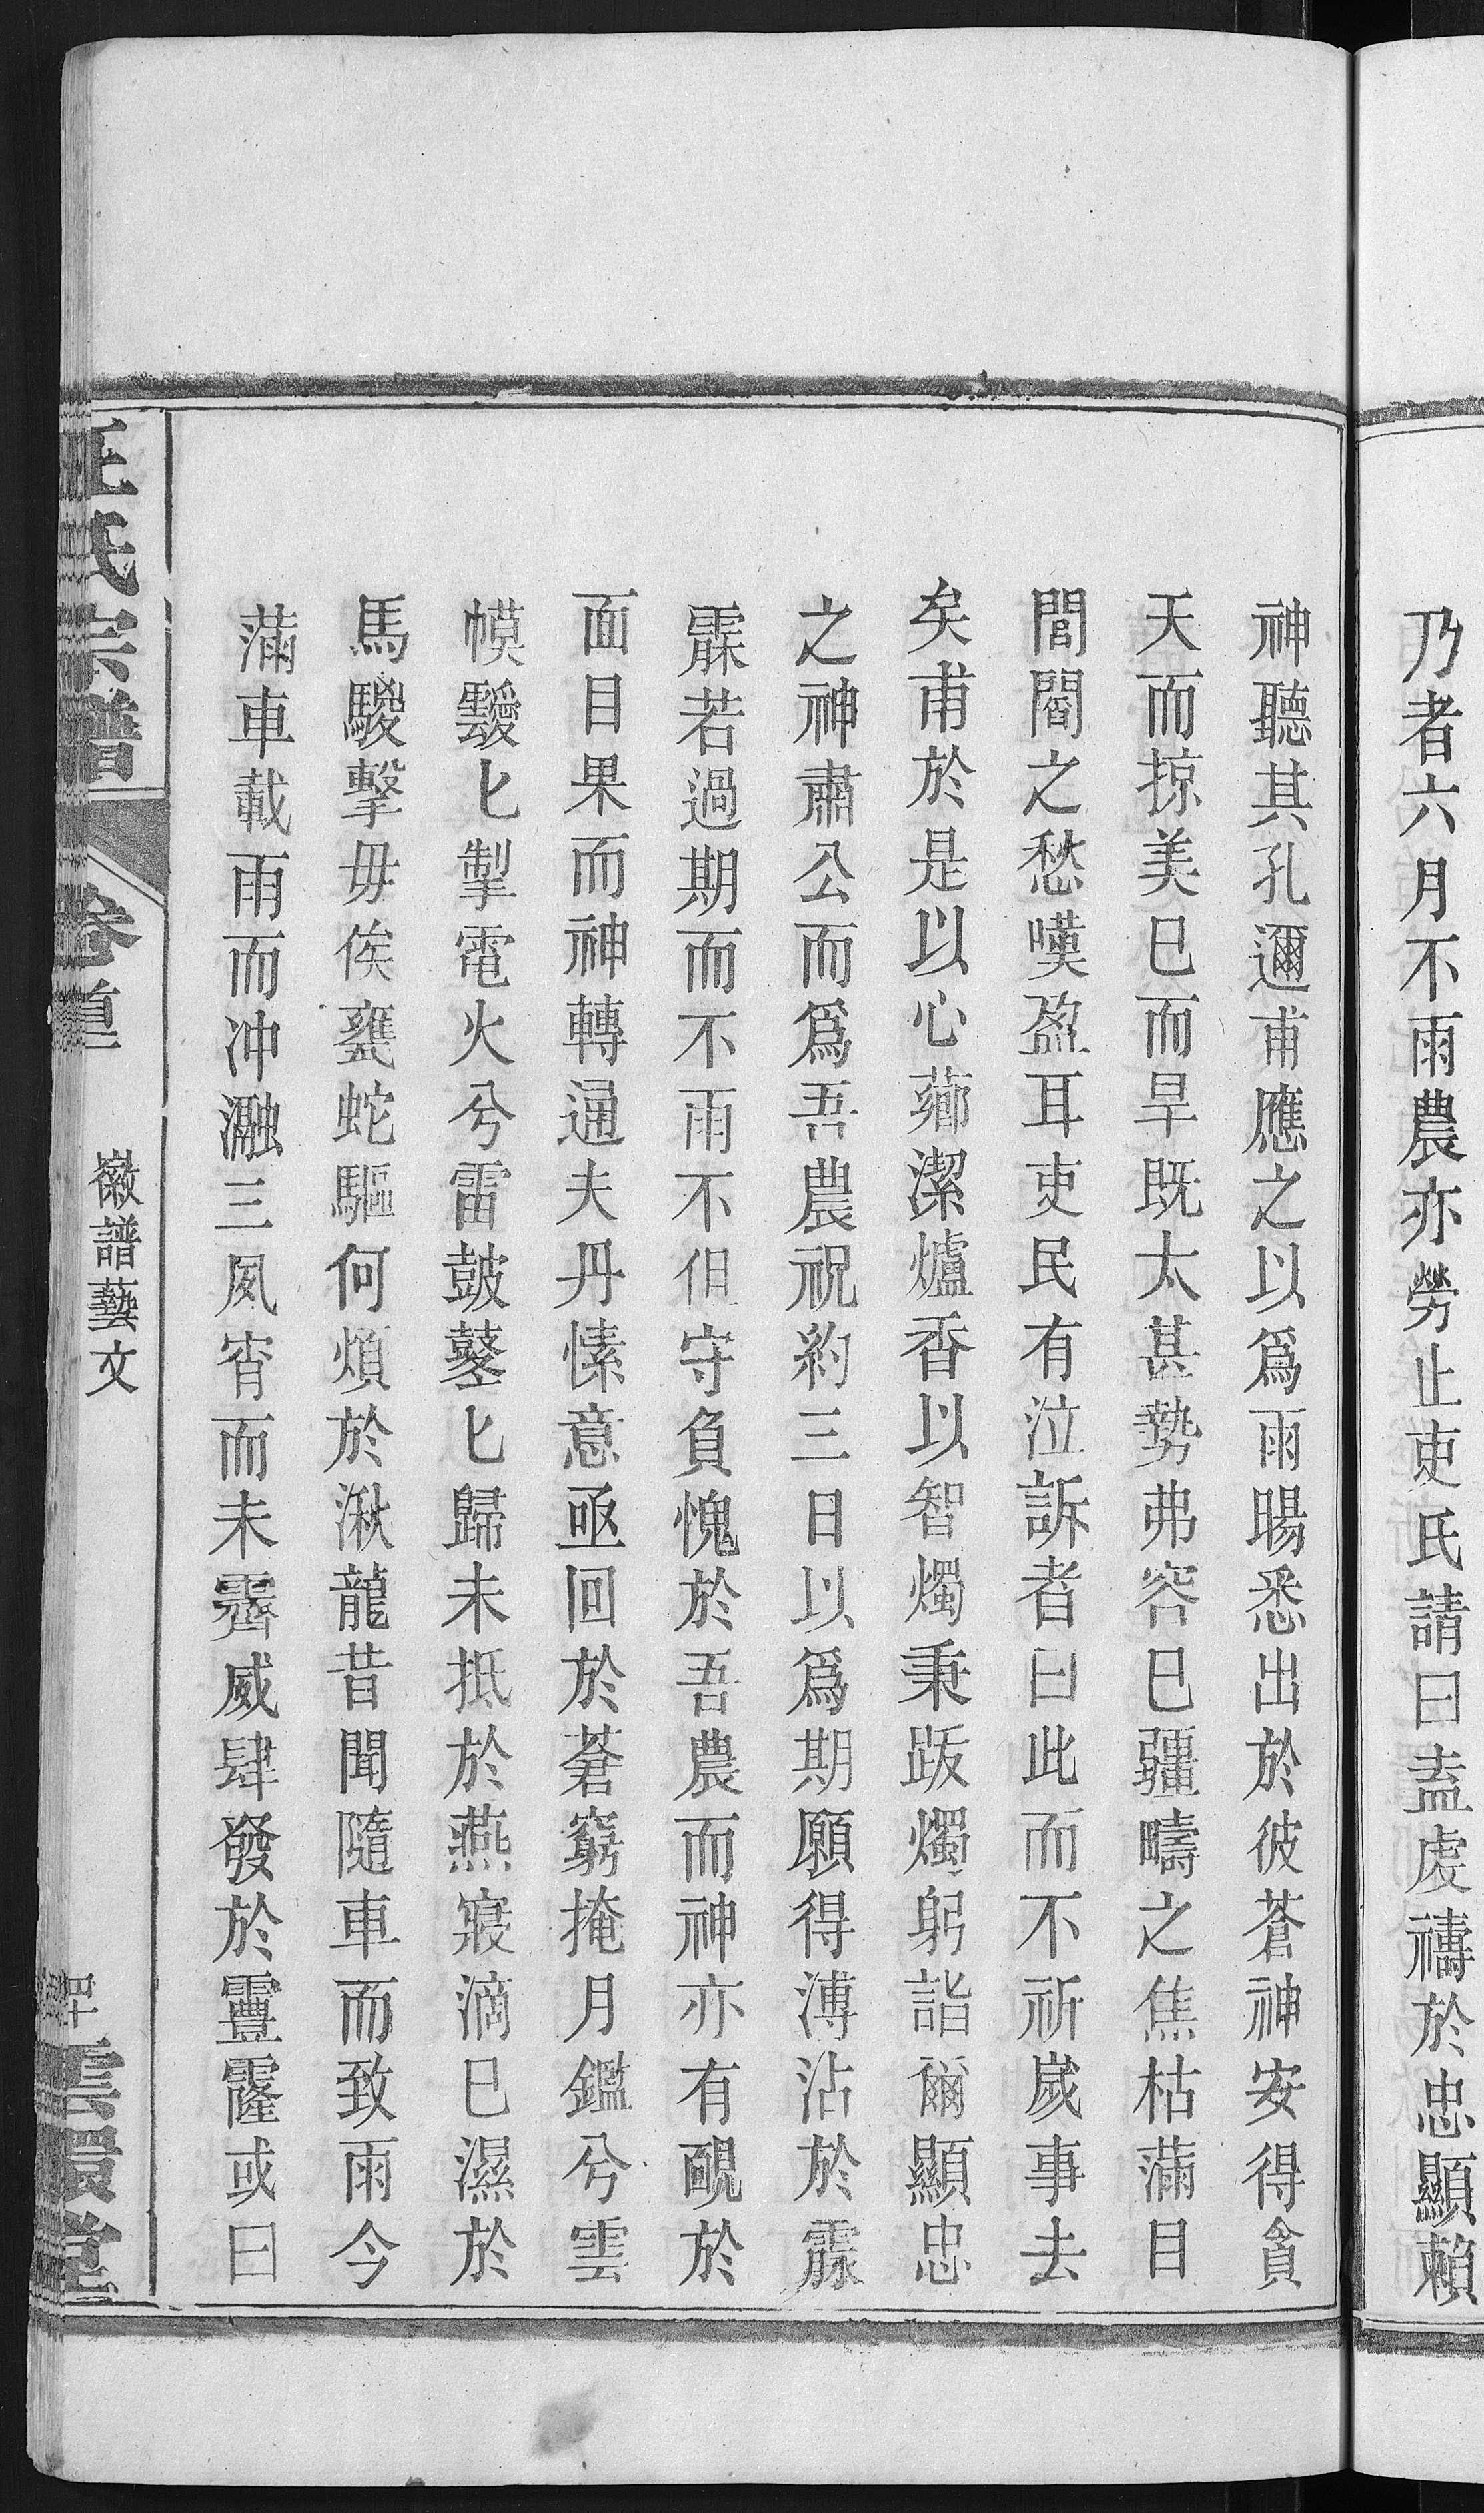 乃者六月不雨農亦勞止吏民請曰盍虔禱於忠顯賴
神聽其孔邇甫應之以爲雨暘悉出於彼蒼神安得貪
天而掠美巳而旱既太甚勢弗容巳疆疇之焦枯滿目
閭閻之愁嘆盈耳吏民有泣訴者曰此而不祈嵗事去
矣甫於是以心薌潔爐香以智燭秉跋燭躬詣爾顯忠
之神肅公而爲吾農祝約三日以爲期願得溥沾於霡
霂若過期而不雨不但守負愧於吾農而神亦有靦於
面目果而神轉通夫丹愫意亟回於蒼窮掩月鑑兮雲
幙靉匕掣電火兮雷鼓鼕匕歸未抵於燕寢滴巳濕於
馬騣擊毋俟甕蛇驅何煩於湫龍昔聞隨車而致雨今
滿車載雨而冲瀜三夙宵而未霽威肆發於靊霳或曰
汪氏宗譜
卷首
徽譜藝文
雲環堂